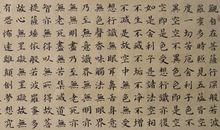 羅蜜多時照見五蘊皆空
度一切苦厄舍利子色不異
空空不異色色即是空空即
是色受想行識亦復如是舍
利子是諸法空相不生不滅
不垢不淨不增不減是故
空中無色無受想行識
無眼耳鼻舌身意無色
聲香味觸法無眼界乃至
無意識界無無明亦無
無明盡乃至無老死亦無
老死盡無苦集滅道無
智亦無得以無所得故菩
提薩埵依般若波羅蜜多
故心無罣礙無罣礙故無
有恐怖遠離顛倒夢想